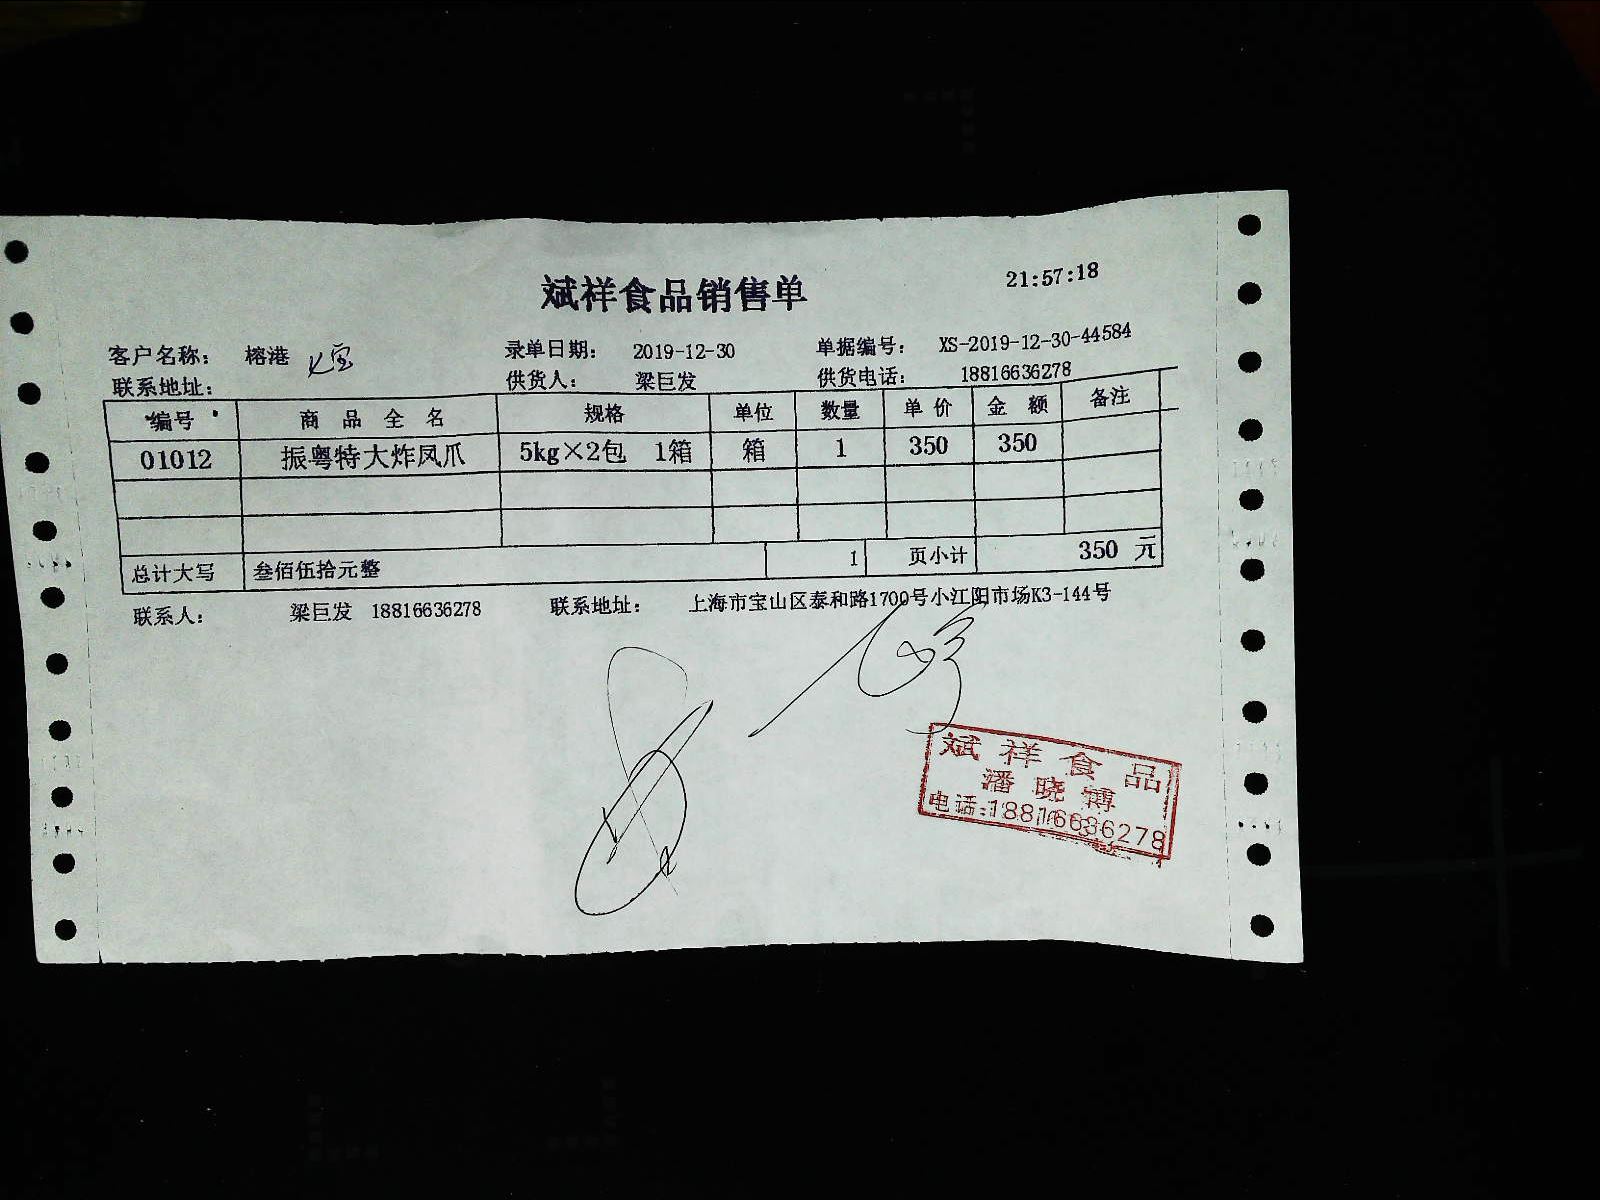 斌祥食品销售单 21:57:18
客户名称： 榕港 录单日期： 2019-12-30 单据编号： XS-2019-12-30-44584
联系地址： 供货人： 梁巨发 供货电话： 18816636278
编号 商品全名 规格 单位 数量 单价 金额 备注
01012 振粤特大炸凤爪 5kg×2包 1箱 箱 1 350 350
总计大写 叁佰伍拾元整 1 页小计 350 元
联系人： 梁巨发 18816636278 联系地址： 上海市宝山区泰和路1700号小江阳市场K3-144号
斌祥食品
潘晓博
电话:18816636278